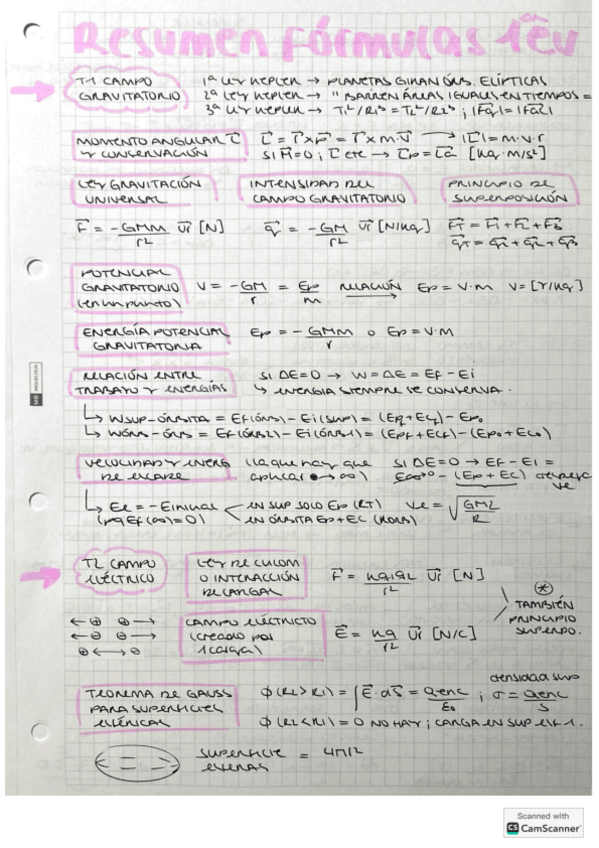 Resumen Fórmulas 1ªev
T1 CAMPO GRAVITATORIO
1ª LEY KEPLER → PLANETAS GIRAN ÓRB. ELÍPTICAS
2ª LEY KEPLER → "BARREN ÁREAS IGUALES EN TIEMPOS =
3ª LEY KEPLER → T1²/R1³ = T2²/R2³ ; |FG1| = |FG2|
MOMENTO ANGULAR L Y CONSERVACIÓN
L = r x p = r x m·v → |L| = m·v·r
SI M = 0 ; L cte → Lp = La [kg·m/s²]
LEY GRAVITACIÓN UNIVERSAL
INTENSIDAD DEL CAMPO GRAVITATORIO
PRINCIPIO DE SUPERPOSICIÓN
F = -GMm/r² ur [N]
g = -GM/r² ur [N/kg]
FT = F1 + F2 + F3
gT = g1 + g2 + g3
POTENCIAL GRAVITATORIO (en un punto)
V = -GM/r = Ep/m RELACIÓN → Ep = V·m V = [J/kg]
ENERGÍA POTENCIAL GRAVITATORIA
Ep = - GMm/r o Ep = V·m
RELACIÓN ENTRE TRABAJO Y ENERGÍAS
SI ΔE = 0 → W = ΔE = Ef - Ei
↳ ENERGIA SIEMPRE SE CONSERVA.
↳ WSUP-ÓRBITA = Ef(ÓRB) - Ei(SUP) = (Epf + Ecf) - Ep0
↳ WÓRB-ÓRB = Ef(ÓRB2) - Ei(ÓRB1) = (Epf + Ecf) - (Ep0 + Ec0)
VELOCIDAD Y ENERG DE ESCAPE
(la que hay que aplicar → ∞)
SI ΔE = 0 → Ef - Ei =
E∞=0 - (Ep + Ec)
↳ Ee = -Einicial (pq Ef(∞) = 0)
EN SUP SOLO Ep (RT)
EN ÓRBITA Ep + EC (RÓRB)
Ve = √GM2/R
T2 CAMPO ELÉCTRICO
LEY DE CULOM O INTERACCIÓN DE CARGAS
F = kq1q2/r² ur [N]
* TAMBIÉN PRINCIPIO SUPERPO.
← ⊕ ⊕ →
← ⊖ ⊖ →
⊕ ← → ⊖
CAMPO ELÉCTRICTO (creado por 1 carga)
E = kq/r² ur [N/C]
TEOREMA DE GAUSS PARA SUPERFICIES ESFÉRICAS
Φ(R2>R1) = ∫E·dS = qenc/ε0 ; σ = qenc/S
densidad sup
Φ(R2<R1) = 0 NO HAY ; CARGA EN SUP ESF 1.
SUPERFICIE ESFERAS = 4πr²
Scanned with
CS CamScanner